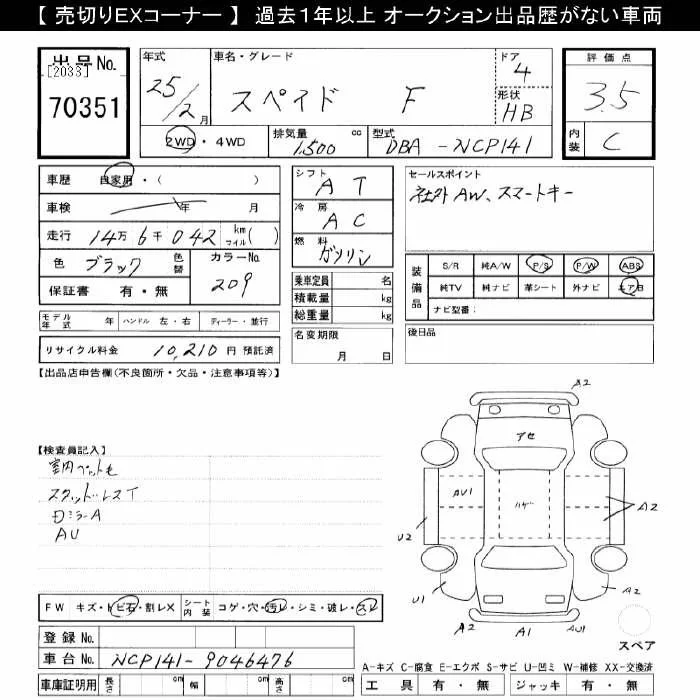 【 売切りEXコーナー 】 過去１年以上 オークション出品歴がない車両
出品No.
[2033]
70351
年式
25/2月
車名・グレード
スペイド F
ドア
4
形状
HB
評価点
3.5
内装
C
2WD・4WD
排気量 1,500 cc
型式 DBA -NCP141
車歴 自家用・( )
車検 年 月
走行 14万 6千 042 km マイル( )
色 ブラック 色替
カラーNo.
209
保証書 有・無
シフト
AT
冷房
AC
燃料
ガソリン
乗車定員 名
積載量 kg
総重量 kg
セールスポイント
社外AW、スマートキー
装備品
S/R 純A/W P/S P/W ABS
純TV 純ナビ 革シート 外ナビ エアB
ナビ型番：
モデル年式 年 ハンドル 左・右 ディーラー・並行
名変期限
月 日
後日品
リサイクル料金 10,210 円 預託済
【出品店申告欄(不良箇所・欠品・注意事項等)】
【検査員記入】
室内ペット毛
スペアキーレス
日ミラーA
AU
A2
アセ
AU1
ハゲ
A2
U2
U1
A2
A2
A1
AU1
スペア
FW キズ・トビ石・割レX
シート内装 コゲ・穴・汚レ・シミ・破レ・スレ
登録 No.
車台 No. NCP141-9046476
A-キズ C-腐食 E-エクボ S-サビ U-凹ミ W-補修 XX-交換済
車庫証明用 長さ cm 幅 cm 高さ cm
工具 有・無 ジャッキ 有・無